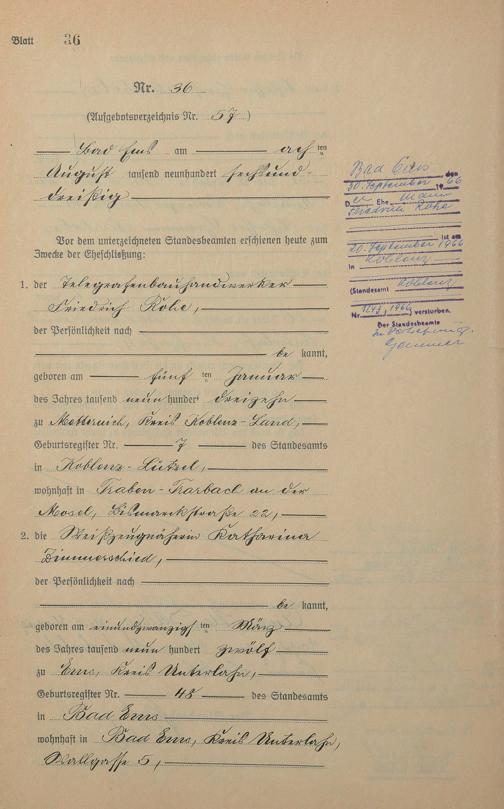 Blatt 36
Nr. 36
(Aufgebotsverzeichnis Nr. 57)
Bad Ems am ach ten
August tausend neunhundert sechsund-
dreißig
Vor dem unterzeichneten Standesbeamten erschienen heute zum
Zwecke der Eheschließung:
1. der Telegrafenbauhandwerker
Friedrich Rohe,
der Persönlichkeit nach
be kannt,
geboren am fünf ten Januar
des Jahres tausend neun hundert dreizehn
zu Metternich, Kreis Koblenz-Land,
Geburtsregister Nr. 7 des Standesamts
in Koblenz-Lützel,
wohnhaft in Traben-Trarbach an der
Mosel, Bismarckstraße 22,
2. die Weißzeugnäherin Katharina
Zimmerschied,
der Persönlichkeit nach
be kannt,
geboren am einundzwanzigs ten März
des Jahres tausend neun hundert zwölf
zu Ems, Kreis Unterlahn,
Geburtsregister Nr. 48 des Standesamts
in Bad Ems
wohnhaft in Bad Ems, Kreis Unterlahn,
Wallgasse 5,
Bad Ems den
30. September 1966
Der Ehemann
Friedrich Rohe
ist am
20. September 1966
in Koblenz
(Standesamt Koblenz
Nr. 1966) verstorben.
Der Standesbeamte
In Vertretung.